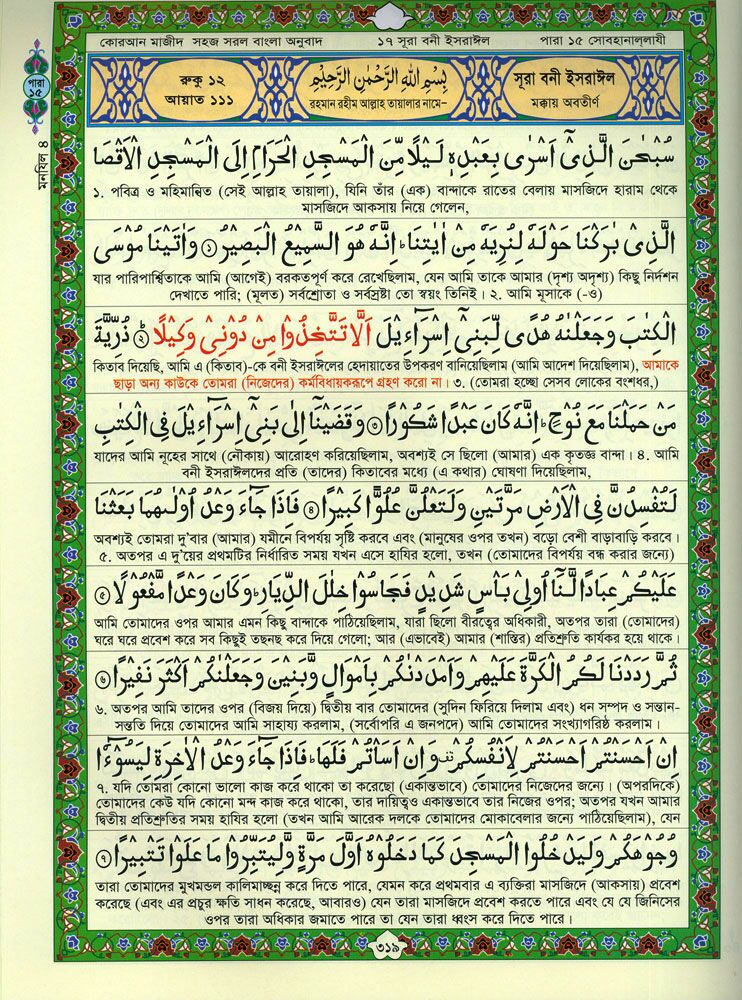 কোরআন মাজীদ সহজ সরল বাংলা অনুবাদ ১৭ সূরা বনী ইসরাঈল পারা ১৫ সোবহানাল্লাযী
পারা ১৫
মনযিল ৪
রুকু ১২
আয়াত ১১১
بِسْمِ اللّٰهِ الرَّحْمٰنِ الرَّحِيْمِ
রহমান রহীম আল্লাহ তায়ালার নামে–
সূরা বনী ইসরাঈল
মক্কায় অবতীর্ণ
سُبْحٰنَ الَّذِىْٓ اَسْرٰى بِعَبْدِهٖ لَيْلًا مِّنَ الْمَسْجِدِ الْحَرَامِ اِلَى الْمَسْجِدِ الْاَقْصَا
১. পবিত্র ও মহিমান্বিত (সেই আল্লাহ তায়ালা), যিনি তাঁর (এক) বান্দাকে রাতের বেলায় মাসজিদে হারাম থেকে
মাসজিদে আকসায় নিয়ে গেলেন,
الَّذِىْ بٰرَكْنَا حَوْلَهٗ لِنُرِيَهٗ مِنْ اٰيٰتِنَا ؕ اِنَّهٗ هُوَ السَّمِيْعُ الْبَصِيْرُ ۞١ وَاٰتَيْنَا مُوْسَى
যার পারিপার্শ্বিতাকে আমি (আগেই) বরকতপূর্ণ করে রেখেছিলাম, যেন আমি তাকে আমার (দৃশ্য অদৃশ্য) কিছু নির্দশন
দেখাতে পারি; (মূলত) সর্বশ্রোতা ও সর্বস্রষ্টা তো স্বয়ং তিনিই। ২. আমি মূসাকে (-ও)
الْكِتٰبَ وَجَعَلْنٰهُ هُدًى لِّبَنِىْٓ اِسْرَآءِيْلَ اَلَّا تَتَّخِذُوْا مِنْ دُوْنِىْ وَكِيْلًا ۞٢ ذُرِّيَّةَ
কিতাব দিয়েছি, আমি এ (কিতাব)-কে বনী ইসরাঈলের হেদায়াতের উপকরণ বানিয়েছিলাম (আমি আদেশ দিয়েছিলাম), আমাকে
ছাড়া অন্য কাউকে তোমরা (নিজেদের) কর্মবিধায়করূপে গ্রহণ করো না। ৩. (তোমরা হচ্ছো সেসব লোকের বংশধর,)
مَنْ حَمَلْنَا مَعَ نُوْحٍ ؕ اِنَّهٗ كَانَ عَبْدًا شَكُوْرًا ۞٣ وَقَضَيْنَآ اِلٰى بَنِىْٓ اِسْرَآءِيْلَ فِى الْكِتٰبِ
যাদের আমি নূহের সাথে (নৌকায়) আরোহণ করিয়েছিলাম, অবশ্যই সে ছিলো (আমার) এক কৃতজ্ঞ বান্দা। ৪. আমি
বনী ইসরাঈলদের প্রতি (তাদের) কিতাবের মধ্যে (এ কথার) ঘোষণা দিয়েছিলাম,
لَتُفْسِدُنَّ فِى الْاَرْضِ مَرَّتَيْنِ وَلَتَعْلُنَّ عُلُوًّا كَبِيْرًا ۞٤ فَاِذَا جَآءَ وَعْدُ اُوْلٰىهُمَا بَعَثْنَا
অবশ্যই তোমরা দু'বার (আমার) যমীনে বিপর্যয় সৃষ্টি করবে এবং (মানুষের ওপর তখন) বড়ো বেশী বাড়াবাড়ি করবে।
৫. অতপর এ দু'য়ের প্রথমটির নির্ধারিত সময় যখন এসে হাযির হলো, তখন (তোমাদের বিপর্যয় বন্ধ করার জন্যে)
عَلَيْكُمْ عِبَادًا لَّنَآ اُولِىْ بَاْسٍ شَدِيْدٍ فَجَاسُوْا خِلٰلَ الدِّيَارِ ؕ وَكَانَ وَعْدًا مَّفْعُوْلًا ۞٥
আমি তোমাদের ওপর আমার এমন কিছু বান্দাকে পাঠিয়েছিলাম, যারা ছিলো বীরত্বের অধিকারী, অতপর তারা (তোমাদের)
ঘরে ঘরে প্রবেশ করে সব কিছুই তছনছ করে দিয়ে গেলো; আর (এভাবেই) আমার (শাস্তির) প্রতিশ্রুতি কার্যকর হয়ে থাকে।
ثُمَّ رَدَدْنَا لَكُمُ الْكَرَّةَ عَلَيْهِمْ وَاَمْدَدْنٰكُمْ بِاَمْوَالٍ وَّبَنِيْنَ وَجَعَلْنٰكُمْ اَكْثَرَ نَفِيْرًا ۞٦
৬. অতপর আমি তাদের ওপর (বিজয় দিয়ে) দ্বিতীয় বার তোমাদের (সুদিন ফিরিয়ে দিলাম এবং) ধন সম্পদ ও সন্তান-
সন্ততি দিয়ে তোমাদের আমি সাহায্য করলাম, (সর্বোপরি এ জনপদে) আমি তোমাদের সংখ্যাগরিষ্ঠ করলাম।
اِنْ اَحْسَنْتُمْ اَحْسَنْتُمْ لِاَنْفُسِكُمْ ۫ وَاِنْ اَسَاْتُمْ فَلَهَا ؕ فَاِذَا جَآءَ وَعْدُ الْاٰخِرَةِ لِيَسُوْٓءٗا
৭. যদি তোমরা কোনো ভালো কাজ করে থাকো তা করেছো (একান্তভাবে) তোমাদের নিজেদের জন্যে। (অপরদিকে)
তোমাদের কেউ যদি কোনো মন্দ কাজ করে থাকো, তার দায়িত্বও একান্তভাবে তার নিজের ওপর; অতপর যখন আমার
দ্বিতীয় প্রতিশ্রুতির সময় হাযির হলো (তখন আমি আরেক দলকে তোমাদের মোকাবেলার জন্যে পাঠিয়েছিলাম), যেন
وُجُوْهَكُمْ وَلِيَدْخُلُوا الْمَسْجِدَ كَمَا دَخَلُوْهُ اَوَّلَ مَرَّةٍ وَّلِيُتَبِّرُوْا مَا عَلَوْا تَتْبِيْرًا ۞٧
তারা তোমাদের মুখমন্ডল কালিমাচ্ছন্ন করে দিতে পারে, যেমন করে প্রথমবার এ ব্যক্তিরা মাসজিদে (আকসায়) প্রবেশ
করেছে (এবং এর প্রচুর ক্ষতি সাধন করেছে, আবারও) যেন তারা মাসজিদে প্রবেশ করতে পারে এবং যে যে জিনিসের
ওপর তারা অধিকার জমাতে পারে তা যেন তারা ধ্বংস করে দিতে পারে।
৩১৯